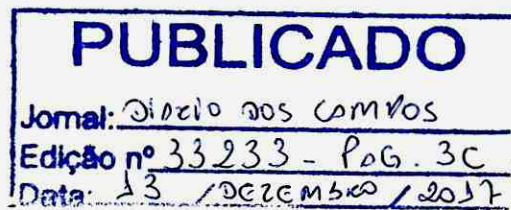 PUBLICADO
Jornal: Diário dos Campos
Edição nº 33233 - PÁG. 3C
Data: 13 / DEZEMBRO / 2017